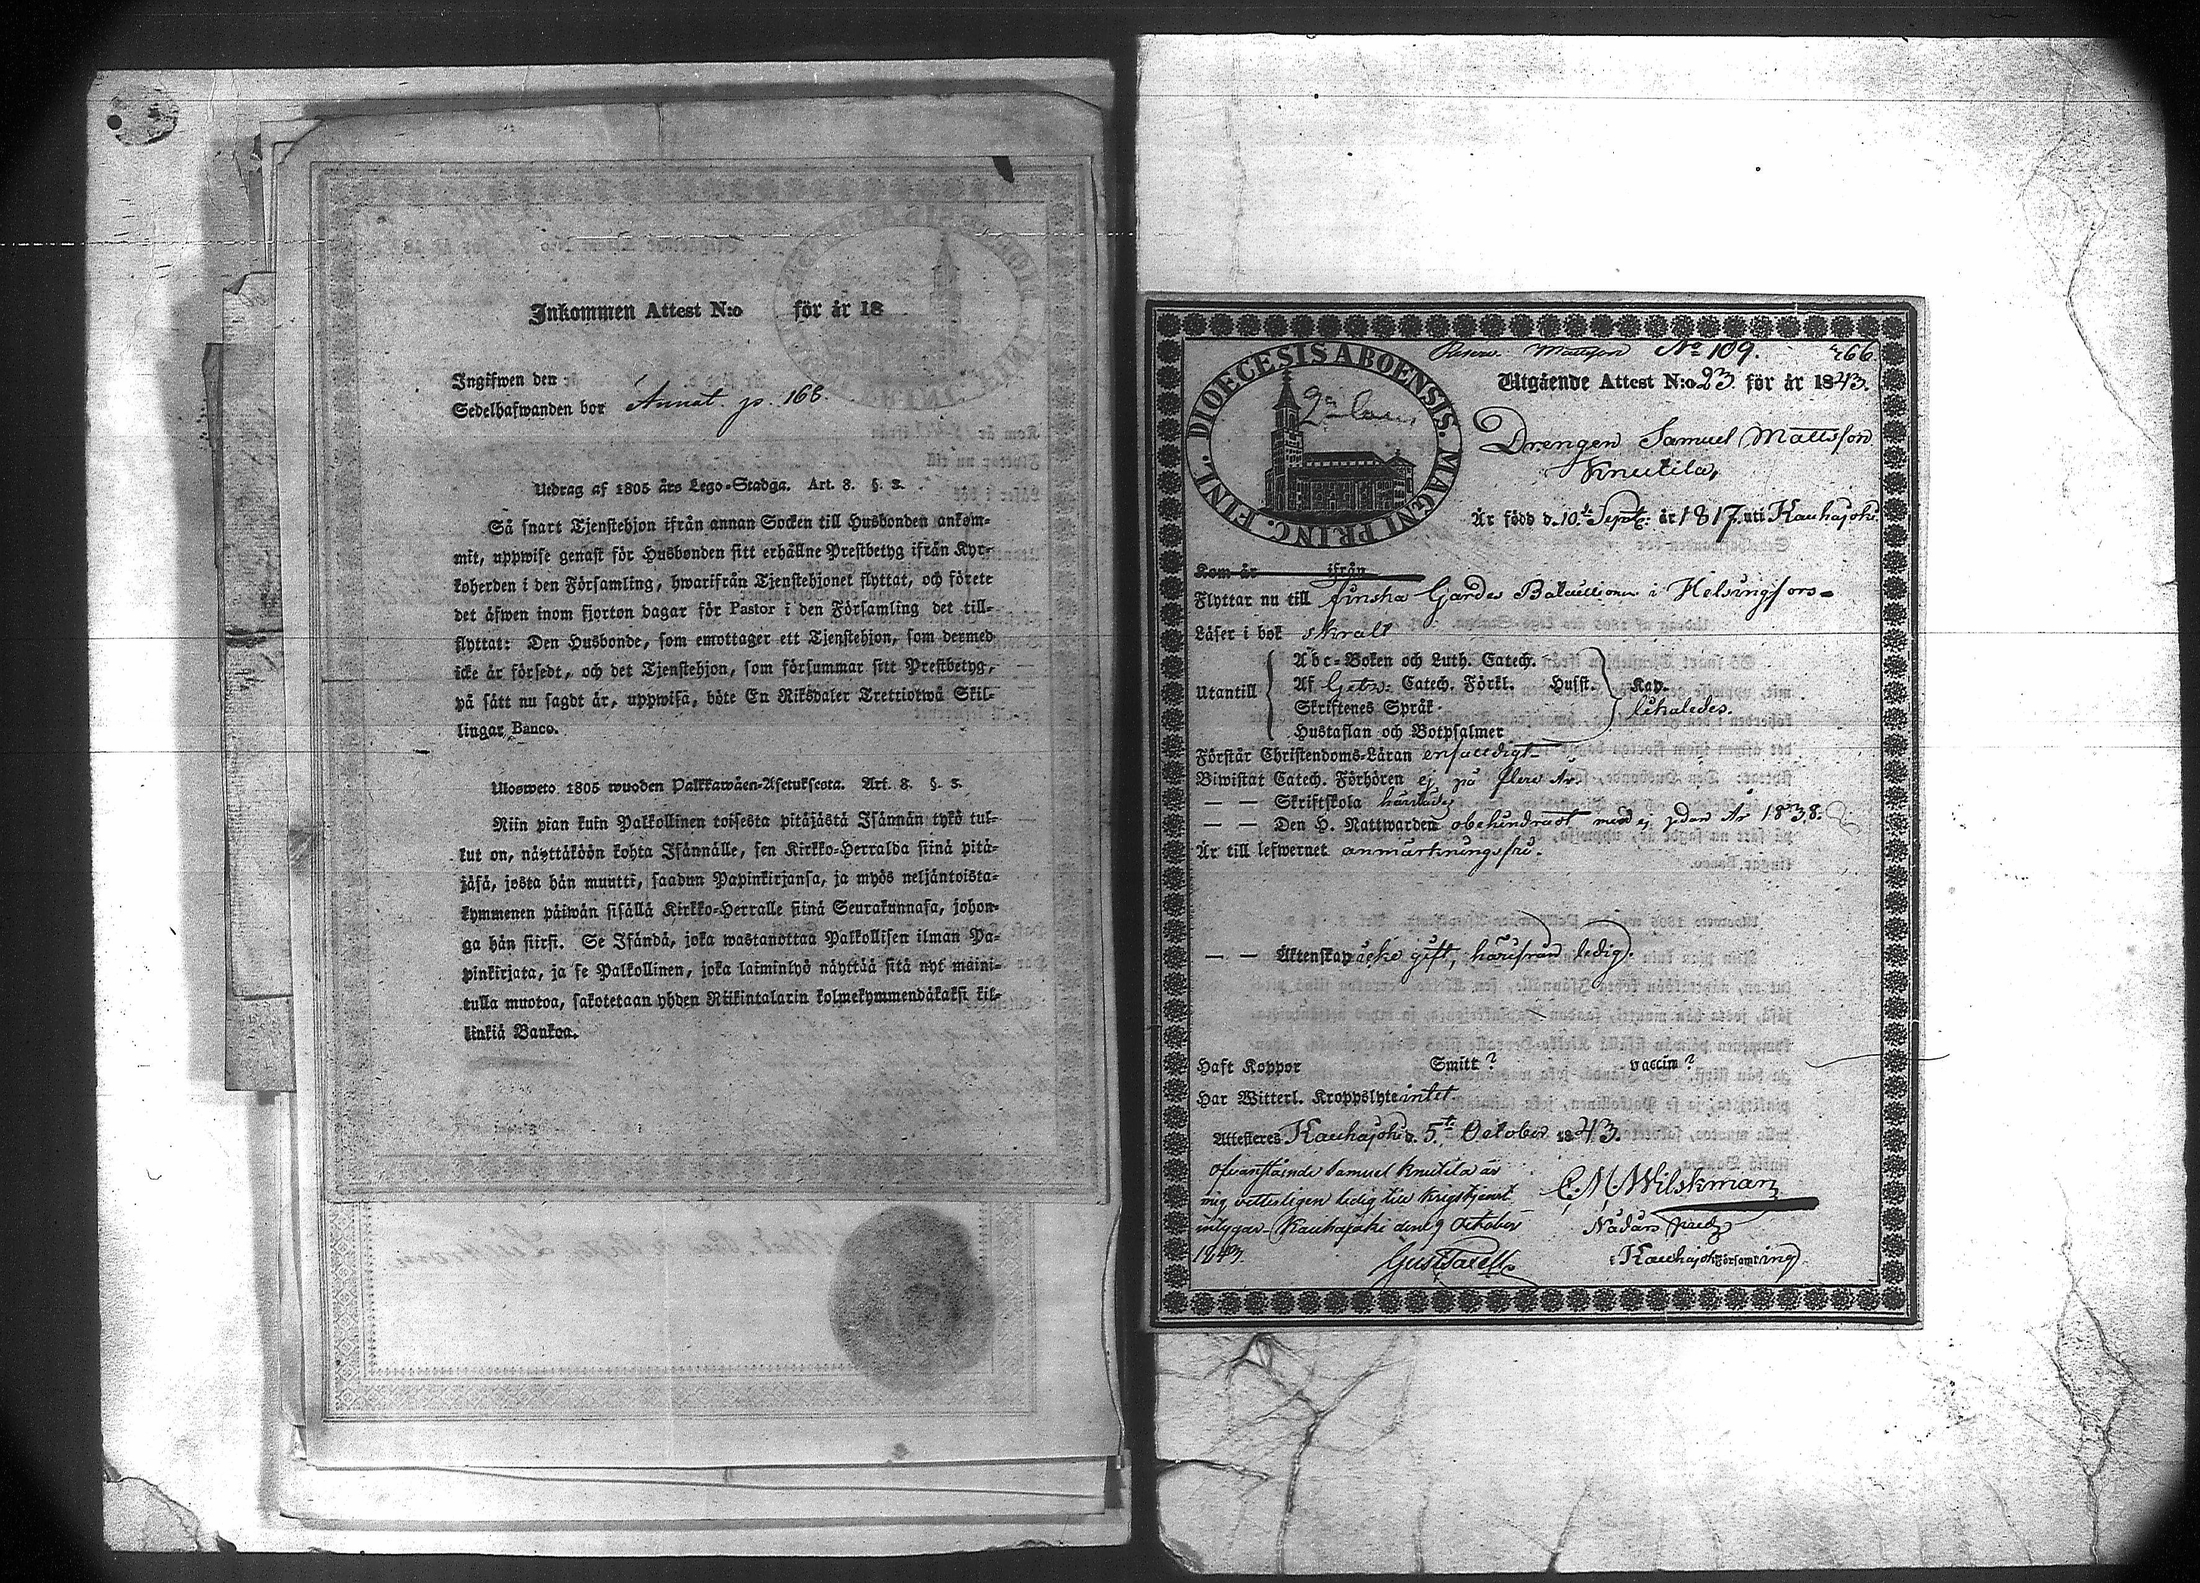 Inkommen Attest N:o för år 18
Ingifwen den
Sedelhafwanden bor Annot. p. 168.
Utdrag af 1805 års Lego-Stadga. Art. 8. §. 3.
Så snart Tjenstehjon ifrån annan Socken till Husbonden ankom-
mit, uppwise genast för Husbonden sitt erhållne Prestbetyg ifrån Kyr-
koherden i den Församling, hwarifrån Tjenstehjonet flyttat, och förete
det äfwen inom fjorton dagar för Pastor i den Församling det till-
flyttat: Den Husbonde, som emottager ett Tjenstehjon, som dermed
icke är försedt, och det Tjenstehjon, som försummar sitt Prestbetyg,
på sätt nu sagdt är, uppwisa, böte En Riksdaler Trettiotwå Skil-
lingar Banco.
Ulosweto 1805 wuoden Palkkawäen-Asetuksesta. Art. 8. §. 3.
Niin pian kuin Palkollinen toisesta pitäjästä Isännän tykö tul-
lut on, näyttäköön kohta Isännälle, sen Kirkko-Herralda siinä pitä-
jäsä, josta hän muutti, saadun Papinkirjansa, ja myös neljäntoista-
kymmenen päiwän sisällä Kirkko-Herralle siinä Seurakunnasa, johon-
ga hän siirsi. Se Isändä, joka wastanottaa Palkollisen ilman Pa-
pinkirjata, ja se Palkollinen, joka laiminlyö näyttää sitä nyt maini-
tulla muotoa, sakotetaan yhden Riikintalarin kolmekymmendäkaksi kil-
linkiä Bankoa.
DIOECESIS ABOENSIS. MAGNI PRINC. FINL.
Mattson No 109. 266
Utgående Attest N:o 23 för år 1843.
Drengen Samuel Mattsson
Knutila,
Är född d. 10:de Sept: år 1817. uti Kauhajoki
Kom år ifrån
Flyttar nu till finska Gardes Bataillionen i Helsingfors
Läser i bok skralt
Utantill
Abc-Boken och Luth. Catech.
Af Getz. Catech. Förkl. Husst. Kap.
Skriftenes Språk likaledes.
Hustaflan och Botpsalmer
Förstår Christendoms-Läran enfalldigt
Biwistat Catech. Förhören ej på flere År.
— — Skriftskola
— — Den H. Nattwarden obehindradt men ej sedan År 1838.
Är till lefwernet anmärkningsfri.
— — Äktenskap icke gift, härifrån ledig.
Haft Koppor Smitt? vaccin?
Har Witterl. Kroppslyte intet.
Attesteres Kauhajoki d. 5:te October 1843.
Ofvanstående Samuel Knutila är
mig vetterligen ledig till krigstjenst
ingå. Kauhajoki den 9 October
1843.
C. M. Wilskman
Nådårs pred.
i Kauhajoki församling